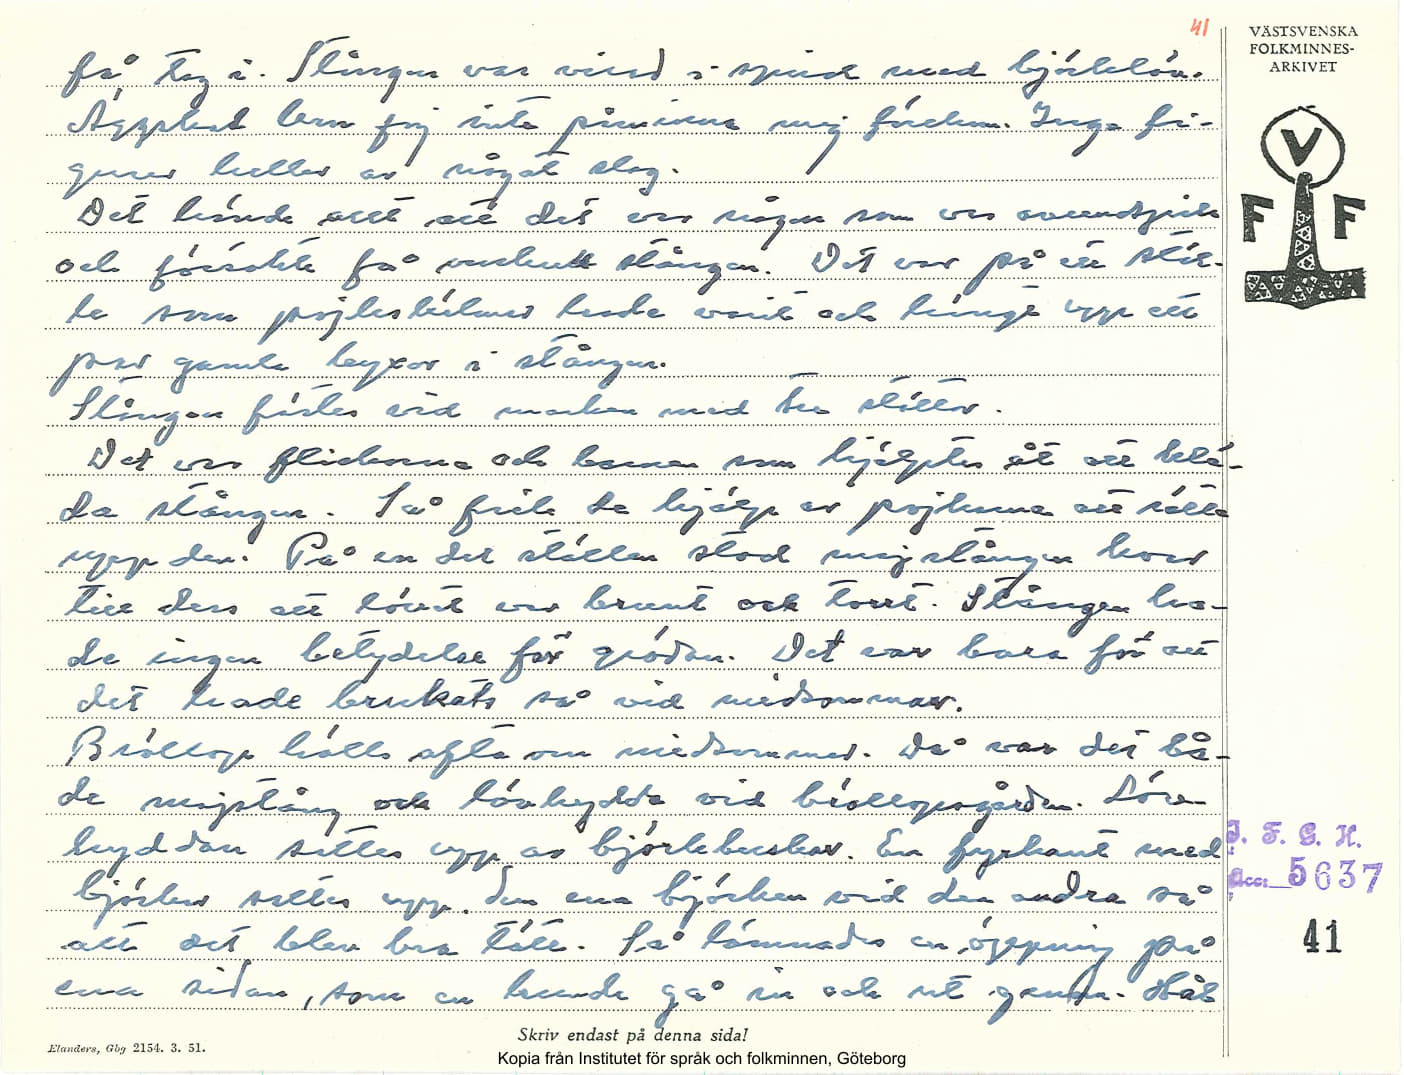 41
VÄSTSVENSKA
FOLKMINNES-
ARKIVET
V
F F
få tag i. Stången var virad i spiral med björklöv.
Äggskal kan jag inte påminna mig förekom. Inga fi-
gurer heller av något slag.
Det hände allt att det var någon som var avundsjuk
och försökte få omkull stången. Det var på ett stäl-
le som pojkstöllar hade varit och hängt upp ett
par gamla byxor i stången.
Stången fästes vid marken med tre stöttor.
Det var flickorna och barnen som hjälptes åt att klä-
da stången. Så fick de hjälp av pojkarna att sätta
upp den. På en del ställen stod majstången kvar
till dess att lövet var brunt och torrt. Stången ha-
de ingen betydelse för grödan. Det var bara för att
det hade brukats så vid midsommar.
Bröllop hölls ofta om midsommar. Då var det bå-
de majstång och lövhydda vid bröllopsgården. Löv-
hyddan sattes upp av björkbuskar. En fyrkant med
björkar sattes upp. Den ena björken vid den andra så
att det blev bra tätt. Så lämnades en öppning på
ena sidan, som en kunde gå in och ut genom. Håll
I. F. G. H.
Acc: 5637
41
Skriv endast på denna sida!
Elanders, Gbg 2154. 3. 51.
Kopia från Institutet för språk och folkminnen, Göteborg